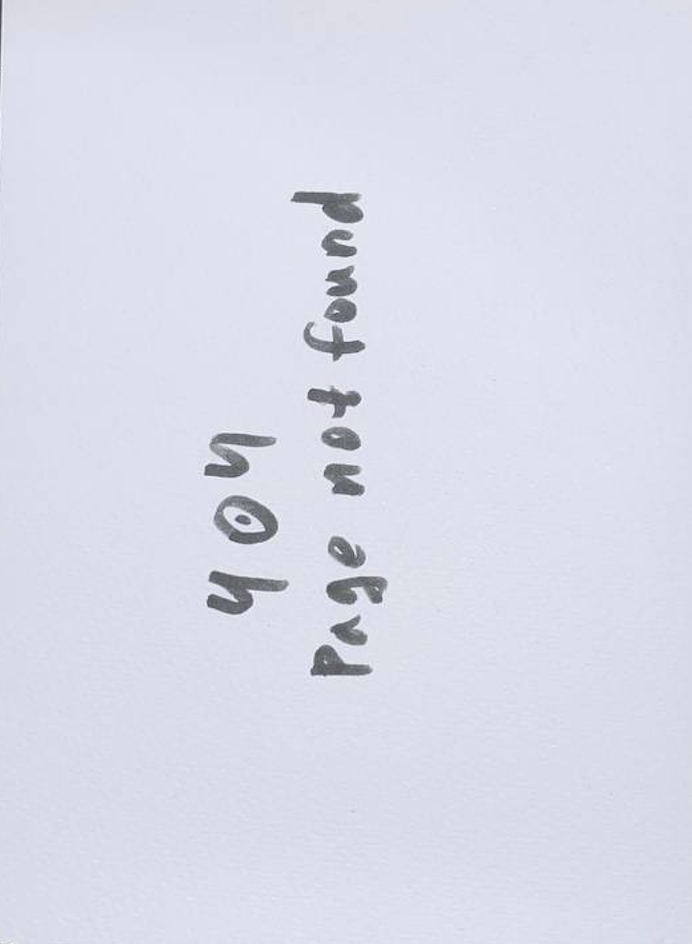 404
Page not found